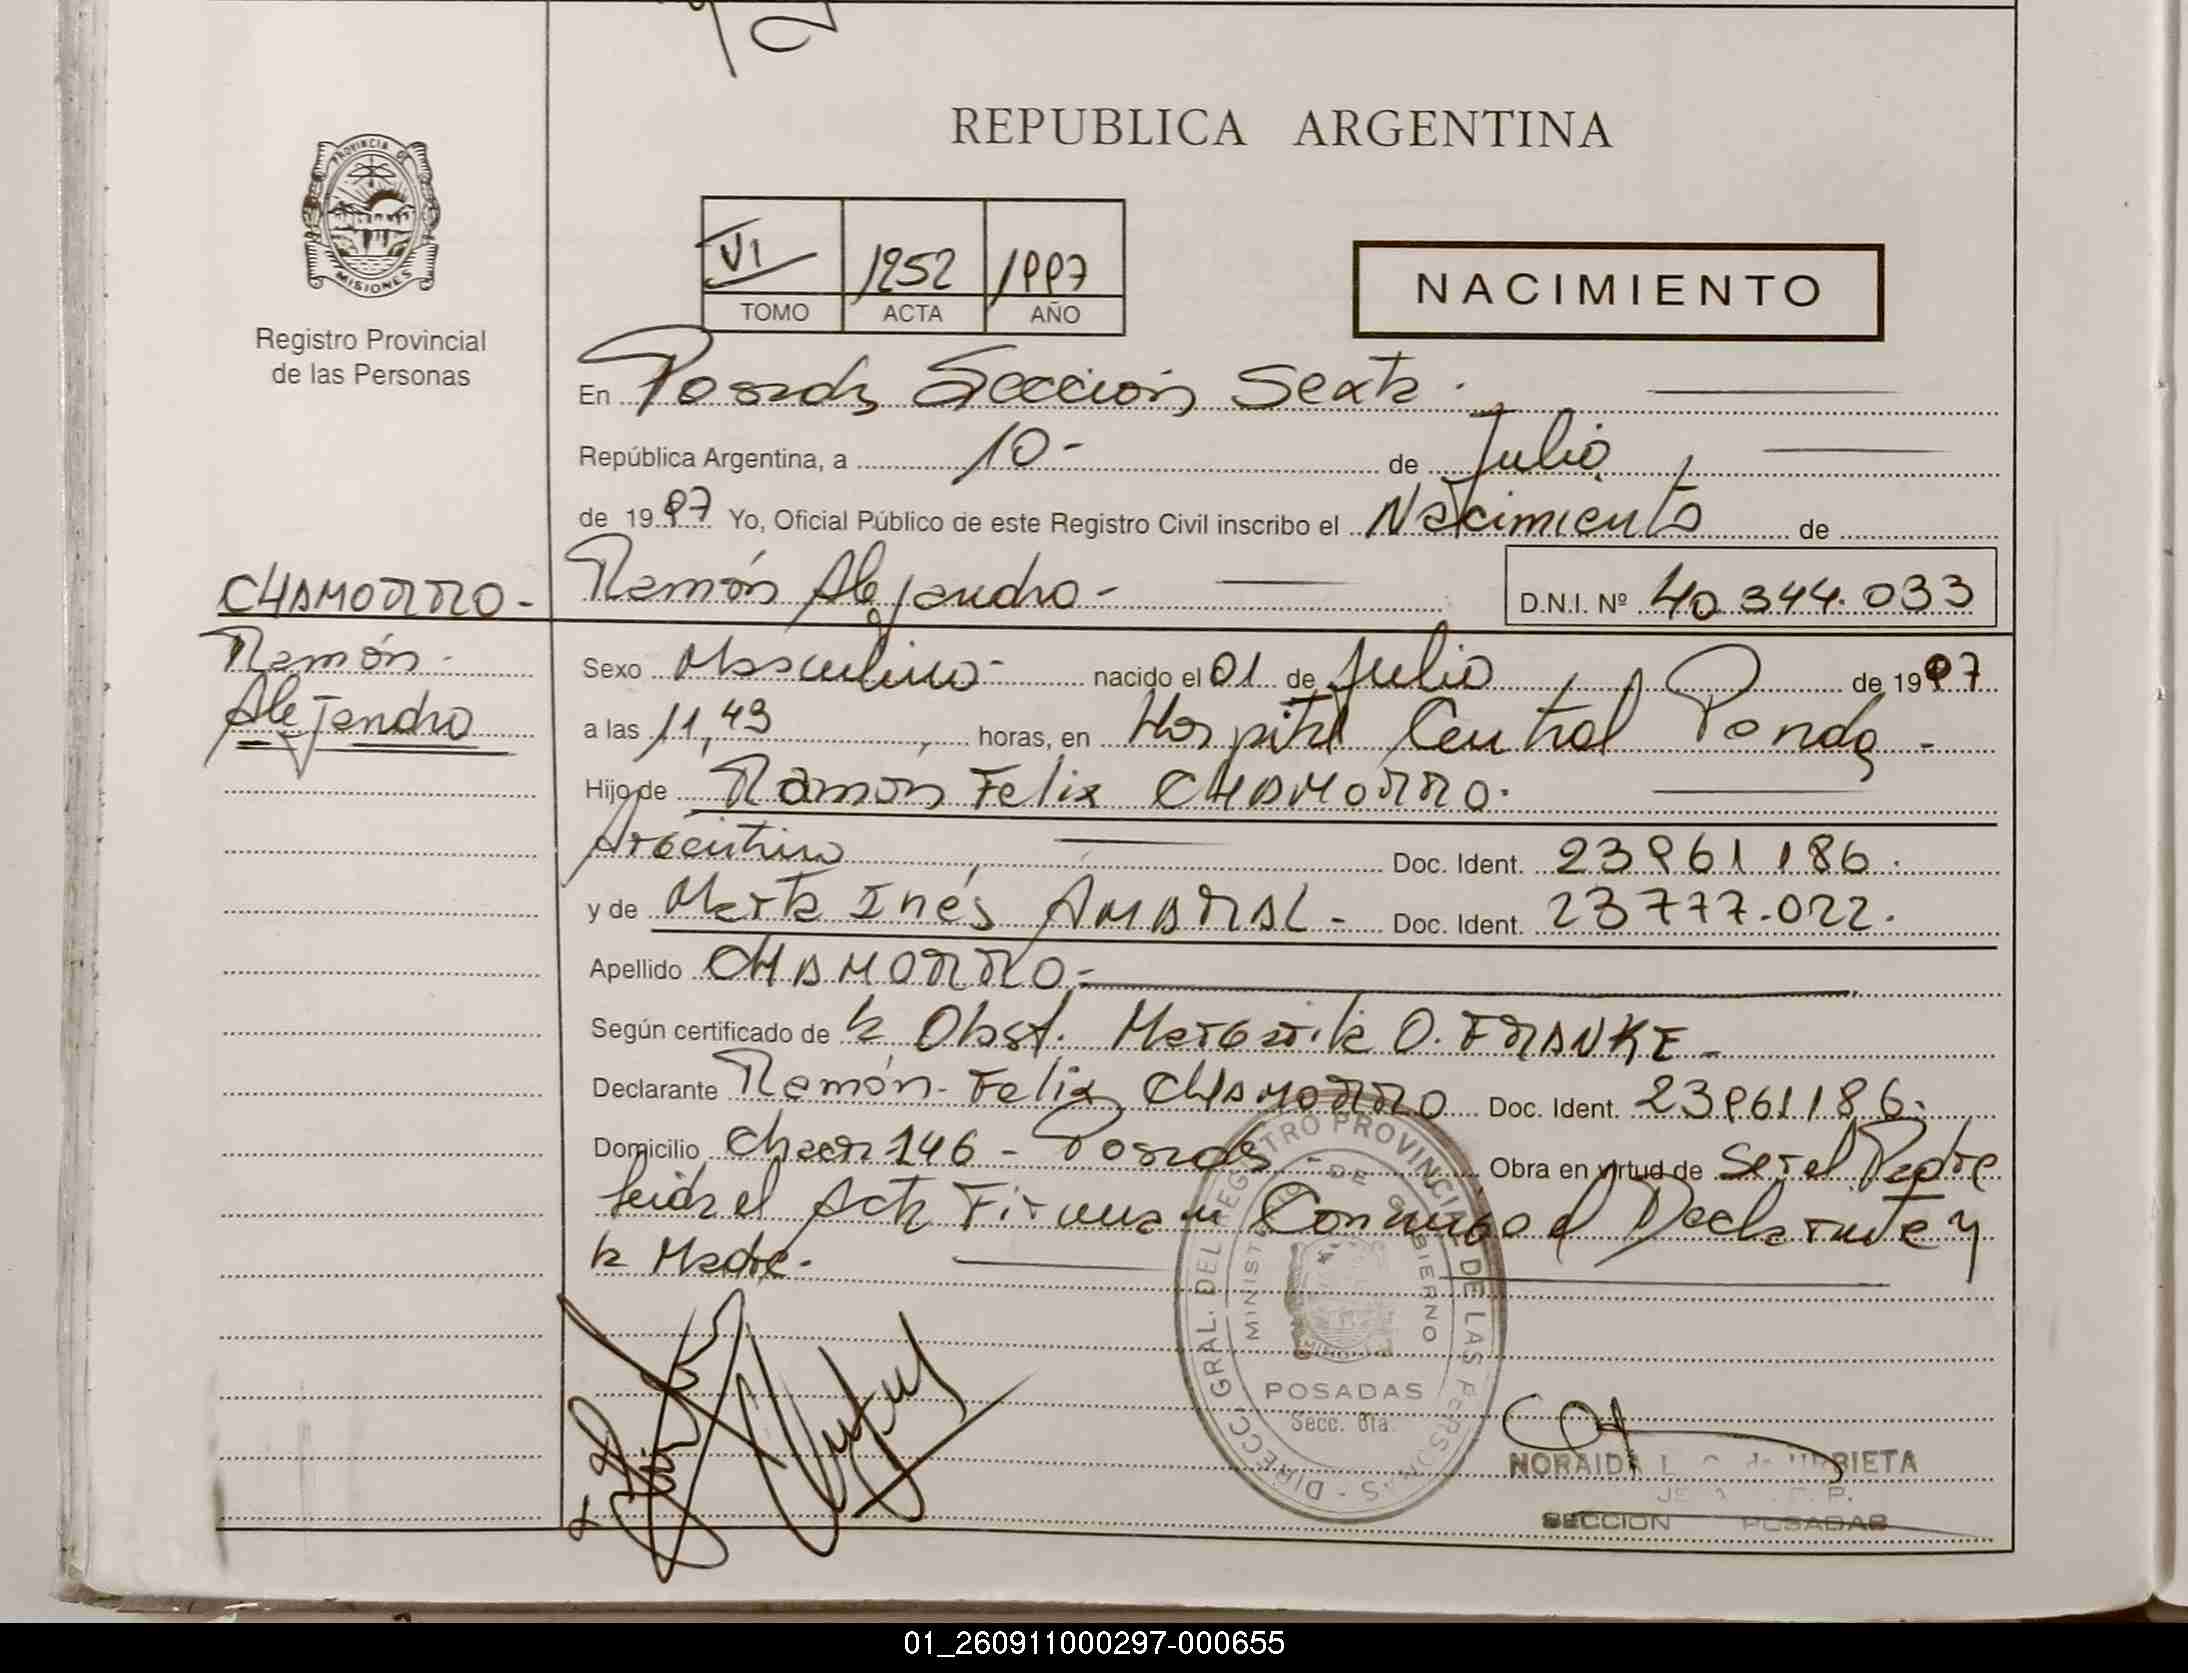 REPUBLICA ARGENTINA
PROVINCIA DE
MISIONES
Registro Provincial
de las Personas
VI 1252 1997
TOMO ACTA AÑO
NACIMIENTO
En Posadas Sección Sexta.
República Argentina, a 10- de Julio
de 1997 Yo, Oficial Público de este Registro Civil inscribo el Nacimiento de
CHAMORRO-
Ramón Alejandro- D.N.I. Nº 40.344.033
Ramón
Alejandro
Sexo Masculino- nacido el 01 de Julio de 1997
a las 11,43 horas, en Hospital Central Posadas -
Hijo de Ramón Felix CHAMORRO.
Argentino Doc. Ident. 23961186.
y de Marta Inés AMARAL- Doc. Ident. 23777.022.
Apellido CHAMORRO-
Según certificado de la Obst. Margarita O. FRANKE-
Declarante Ramón Felix CHAMORRO Doc. Ident. 23961186.
Domicilio Chacra 146 - Posadas - Obra en virtud de Ser el Padre
Leida el Acta Firman Conmigo el Declarante y
la Madre.
DIRECC. GRAL. DEL REGISTRO PROVINCIAL DE LAS PERSONAS
MINISTERIO DE GOBIERNO
POSADAS
Secc. 6ta.
NORAIDA
SECCION POSADAS
01_260911000297-000655